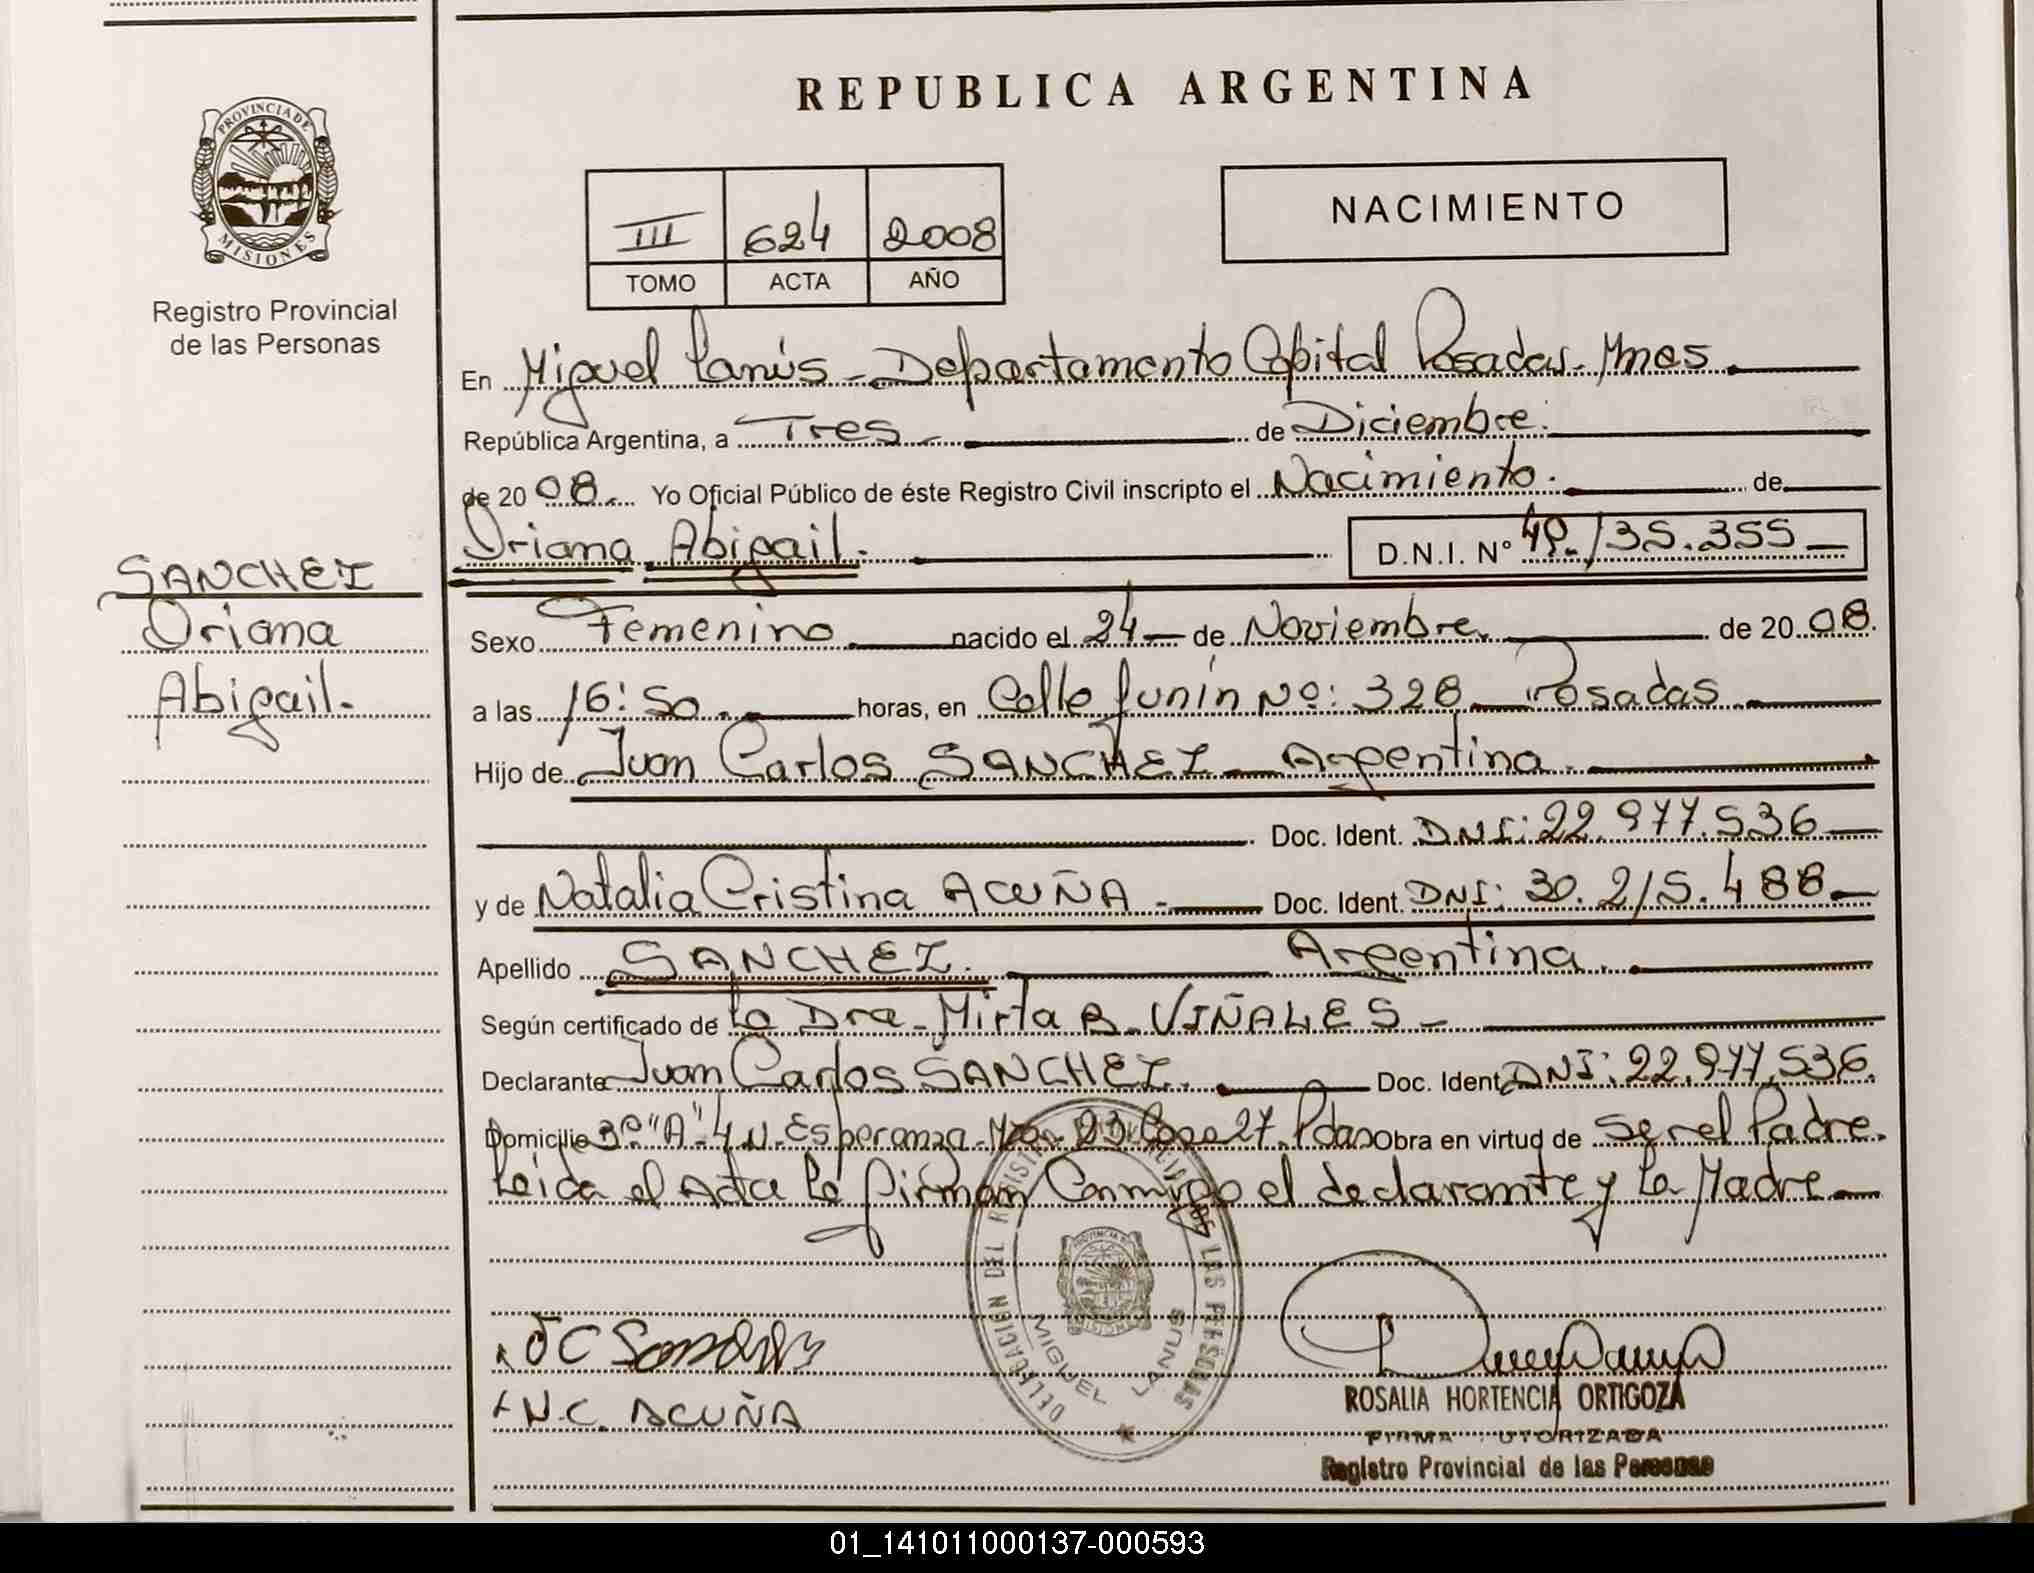 REPUBLICA ARGENTINA
PROVINCIA DE
MISIONES
Registro Provincial
de las Personas
III 624 2008
TOMO ACTA AÑO
NACIMIENTO
En Miguel Lanús - Departamento Capital Posadas - Mnes
República Argentina, a Tres de Diciembre.
de 2008. Yo Oficial Público de éste Registro Civil inscripto el Nacimiento. de
Oriana Abigail. D.N.I. N° 49.135.355
SANCHEZ
Oriana
Abigail.
Sexo Femenino nacido el 24 de Noviembre. de 2008.
a las 16:50. horas, en Calle Junín Nº: 328 Posadas
Hijo de Juan Carlos SANCHEZ Argentina.
Doc. Ident. DNI: 22.977.536
y de Natalia Cristina ACUÑA - Doc. Ident. DNI: 30.215.488
Apellido SANCHEZ. Argentina.
Según certificado de La Dra. Mirta B. VIÑALES -
Declarante Juan Carlos SANCHEZ. Doc. Ident. DNI: 22.977.536.
Domicilio Bº "A" 4 N. Esperanza - 23 27. Pdas Obra en virtud de Ser el Padre.
Leida el Acta la firman Conmigo el declarante y La Madre
DELEGACION DEL REGISTRO PROVINCIAL DE LAS PERSONAS
MIGUEL LANUS
MISIONES
JC Sanchez
N.C. ACUÑA
ROSALIA HORTENCIA ORTIGOZA
FIRMA AUTORIZADA
Registro Provincial de las Personas
01_141011000137-000593